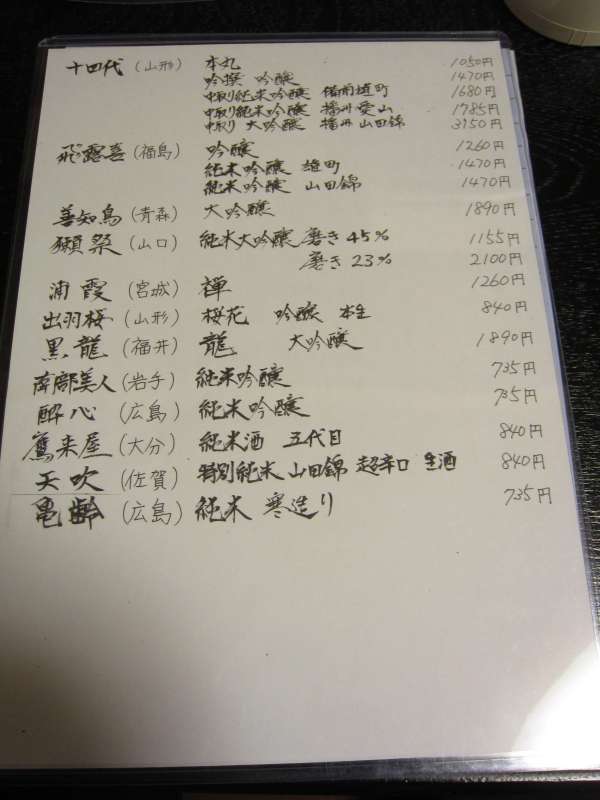 十四代 (山形) 本丸 1050円
吟撰 吟醸 1470円
中取り純米吟醸 備前雄町 1680円
中取り純米吟醸 播州愛山 1785円
中取り 大吟醸 播州 山田錦 3150円
飛露喜 (福島) 吟醸 1260円
純米吟醸 雄町 1470円
純米吟醸 山田錦 1470円
善知鳥 (青森) 大吟醸 1890円
獺祭 (山口) 純米大吟醸 磨き 45% 1155円
磨き 23% 2100円
浦霞 (宮城) 禅 1260円
出羽桜 (山形) 桜花 吟醸 本生 840円
黒龍 (福井) 龍 大吟醸 1890円
南部美人 (岩手) 純米吟醸 735円
酔心 (広島) 純米吟醸 735円
鷹来屋 (大分) 純米酒 五代目 840円
天吹 (佐賀) 特別純米 山田錦 超辛口 生酒 840円
亀齢 (広島) 純米 寒造り 735円